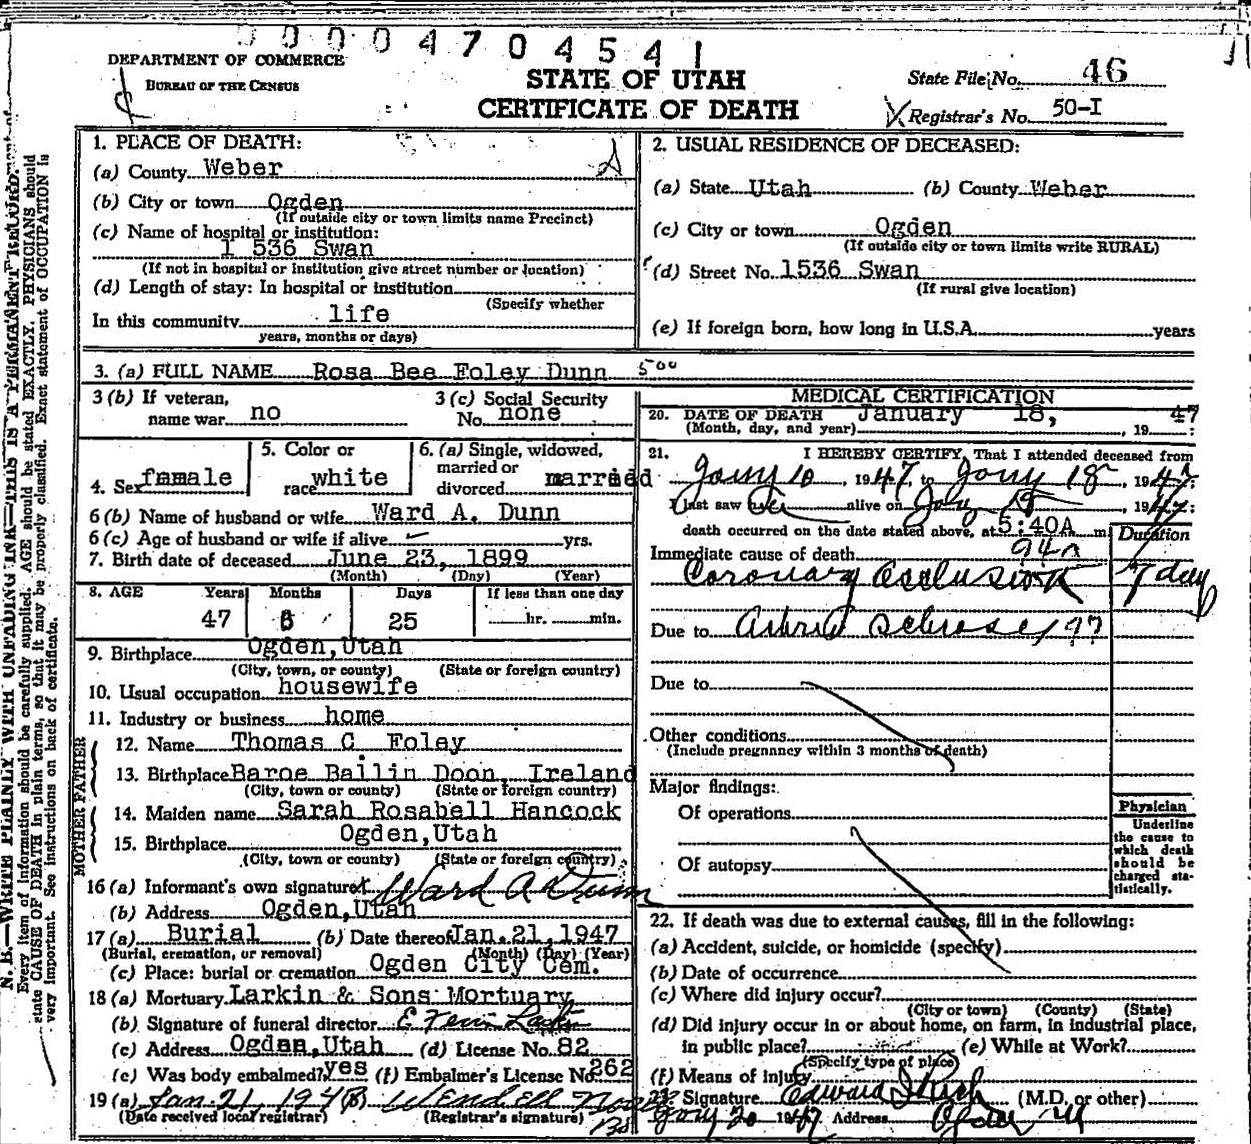 00004704541
DEPARTMENT OF COMMERCE
BUREAU OF THE CENSUS
STATE OF UTAH
CERTIFICATE OF DEATH
State File No. 46
Registrar's No. 50-I
N. B.—WRITE PLAINLY WITH UNFADING INK—THIS IS A PERMANENT RECORD.
Every item of information should be carefully supplied. AGE should be stated EXACTLY. PHYSICIANS should
state CAUSE OF DEATH in plain terms, so that it may be properly classified. Exact statement of OCCUPATION is
very important. See instructions on back of certificate.
1. PLACE OF DEATH:
(a) County Weber
(b) City or town Ogden
(If outside city or town limits name Precinct)
(c) Name of hospital or institution:
1 536 Swan
(If not in hospital or institution give street number or location)
(d) Length of stay: In hospital or institution
(Specify whether
In this community life
years, months or days)
2. USUAL RESIDENCE OF DECEASED:
(a) State Utah (b) County Weber
(c) City or town Ogden
(If outside city or town limits write RURAL)
(d) Street No. 1536 Swan
(If rural give location)
(e) If foreign born, how long in U.S.A. years
3. (a) FULL NAME Rosa Bee Foley Dunn 500
3 (b) If veteran,
name war no
3 (c) Social Security
No. none
4. Sex female
5. Color or
race white
6. (a) Single, widowed,
married or
divorced married
6 (b) Name of husband or wife Ward A. Dunn
6 (c) Age of husband or wife if alive yrs.
7. Birth date of deceased June 23, 1899
(Month) (Day) (Year)
8. AGE Years Months Days If less than one day
47 6 25 hr. min.
9. Birthplace Ogden, Utah
(City, town, or county) (State or foreign country)
10. Usual occupation housewife
11. Industry or business home
FATHER
12. Name Thomas C Foley
13. Birthplace Baroe Bailin Doon, Ireland
(City, town or county) (State or foreign country)
MOTHER
14. Maiden name Sarah Rosabell Hancock
15. Birthplace Ogden, Utah
(City, town or county) (State or foreign country)
16 (a) Informant's own signature Ward A Dunn
(b) Address Ogden, Utah
17 (a) Burial (b) Date thereof Jan. 21, 1947
(Burial, cremation, or removal) (Month) (Day) (Year)
(c) Place: burial or cremation Ogden City Cem.
18 (a) Mortuary Larkin & Sons Mortuary
(b) Signature of funeral director
(c) Address Ogden, Utah (d) License No. 82
(e) Was body embalmed? yes (f) Embalmer's License No. 262
19 (a) Jan 21, 194 (B) Wendell
(Date received local registrar) (Registrar's signature)
MEDICAL CERTIFICATION
20. DATE OF DEATH January 18, 19 47
(Month, day, and year)
21. I HEREBY CERTIFY, That I attended deceased from
Jany 10, 1947, to Jany 18, 1947
I last saw her alive on 1947:
death occurred on the date stated above, at 5:40A m.
Duration
Immediate cause of death 94a
Coronary Occlusion 7 day
Due to 97
Due to
Other conditions
(Include pregnancy within 3 months of death)
Major findings:
Of operations
Of autopsy
Physician
Underline
the cause to
which death
should be
charged sta-
tistically.
22. If death was due to external causes, fill in the following:
(a) Accident, suicide, or homicide (specify)
(b) Date of occurrence
(c) Where did injury occur?
(City or town) (County) (State)
(d) Did injury occur in or about home, on farm, in industrial place,
in public place? (e) While at Work?
(Specify type of place)
(f) Means of injury
23. Signature Edward I Rich (M.D. or other)
Jany 20 1947 Address Ogden